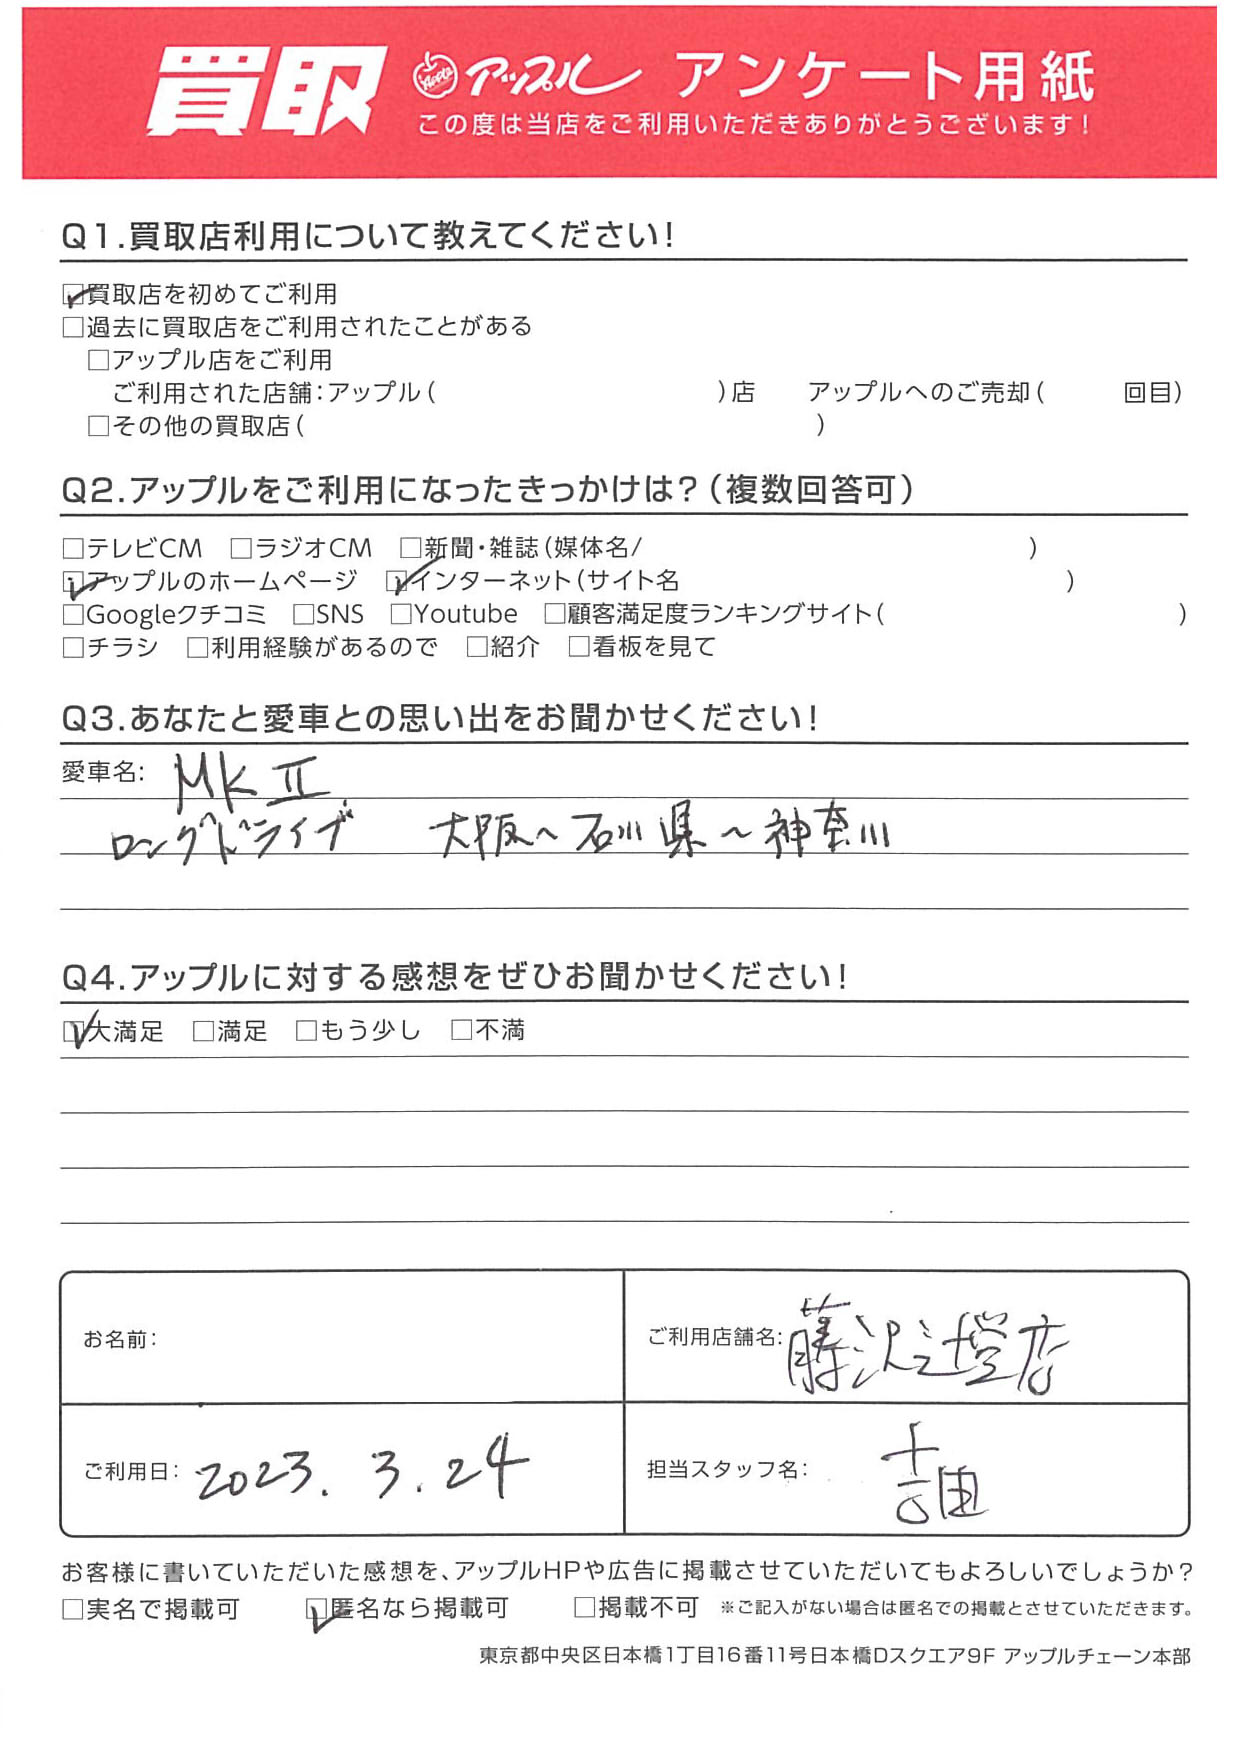 買取 アップル アンケート用紙
この度は当店をご利用いただきありがとうございます!
Q1.買取店利用について教えてください!
☑買取店を初めてご利用
□過去に買取店をご利用されたことがある
□アップル店をご利用
ご利用された店舗:アップル( )店 アップルへのご売却( 回目)
□その他の買取店( )
Q2.アップルをご利用になったきっかけは?(複数回答可)
□テレビCM □ラジオCM □新聞・雑誌(媒体名/ )
☑アップルのホームページ ☑インターネット(サイト名 )
□Googleクチコミ □SNS □Youtube □顧客満足度ランキングサイト( )
□チラシ □利用経験があるので □紹介 □看板を見て
Q3.あなたと愛車との思い出をお聞かせください!
愛車名: MKⅡ
ロングドライブ 大阪~石川県~神奈川
Q4.アップルに対する感想をぜひお聞かせください!
☑大満足 □満足 □もう少し □不満
お名前:
ご利用店舗名: 藤沢辻堂店
ご利用日: 2023.3.24
担当スタッフ名: 吉田
お客様に書いていただいた感想を、アップルHPや広告に掲載させていただいてもよろしいでしょうか?
□実名で掲載可 ☑匿名なら掲載可 □掲載不可 ※ご記入がない場合は匿名での掲載とさせていただきます。
東京都中央区日本橋1丁目16番11号日本橋Dスクエア9F アップルチェーン本部